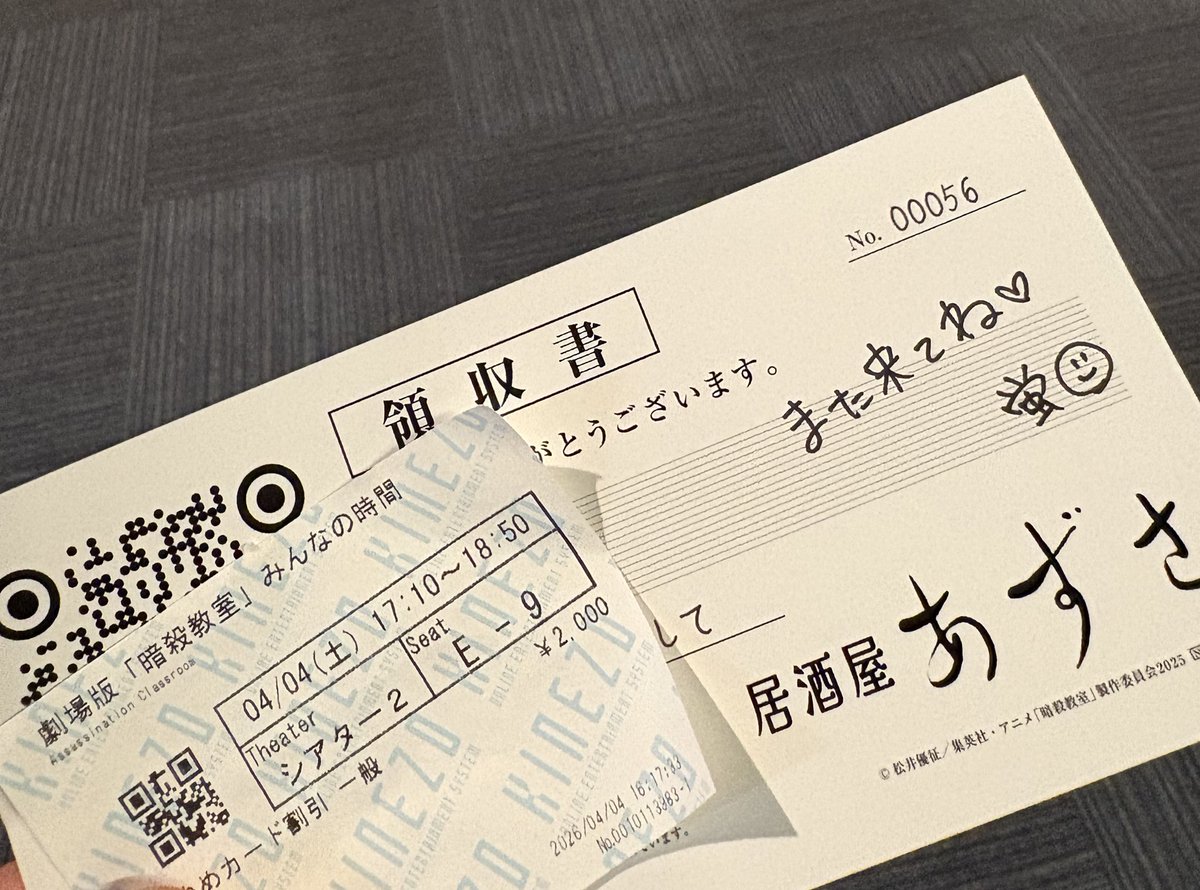 No. 00056
領収書
がとうございます。
また来てね♡
蛍
して
居酒屋 あずさ
©松井優征/集英社・アニメ「暗殺教室」製作委員会2025
劇場版「暗殺教室」みんなの時間
Assassination Classroom
04/04(土) 17:10～18:50
Theater
シアター2
Seat
E - 9
¥2,000
めカード割引 一般
2026/04/04 16:17:33
KINEZO
ONLINE ENTERTAINMENT SYSTEM